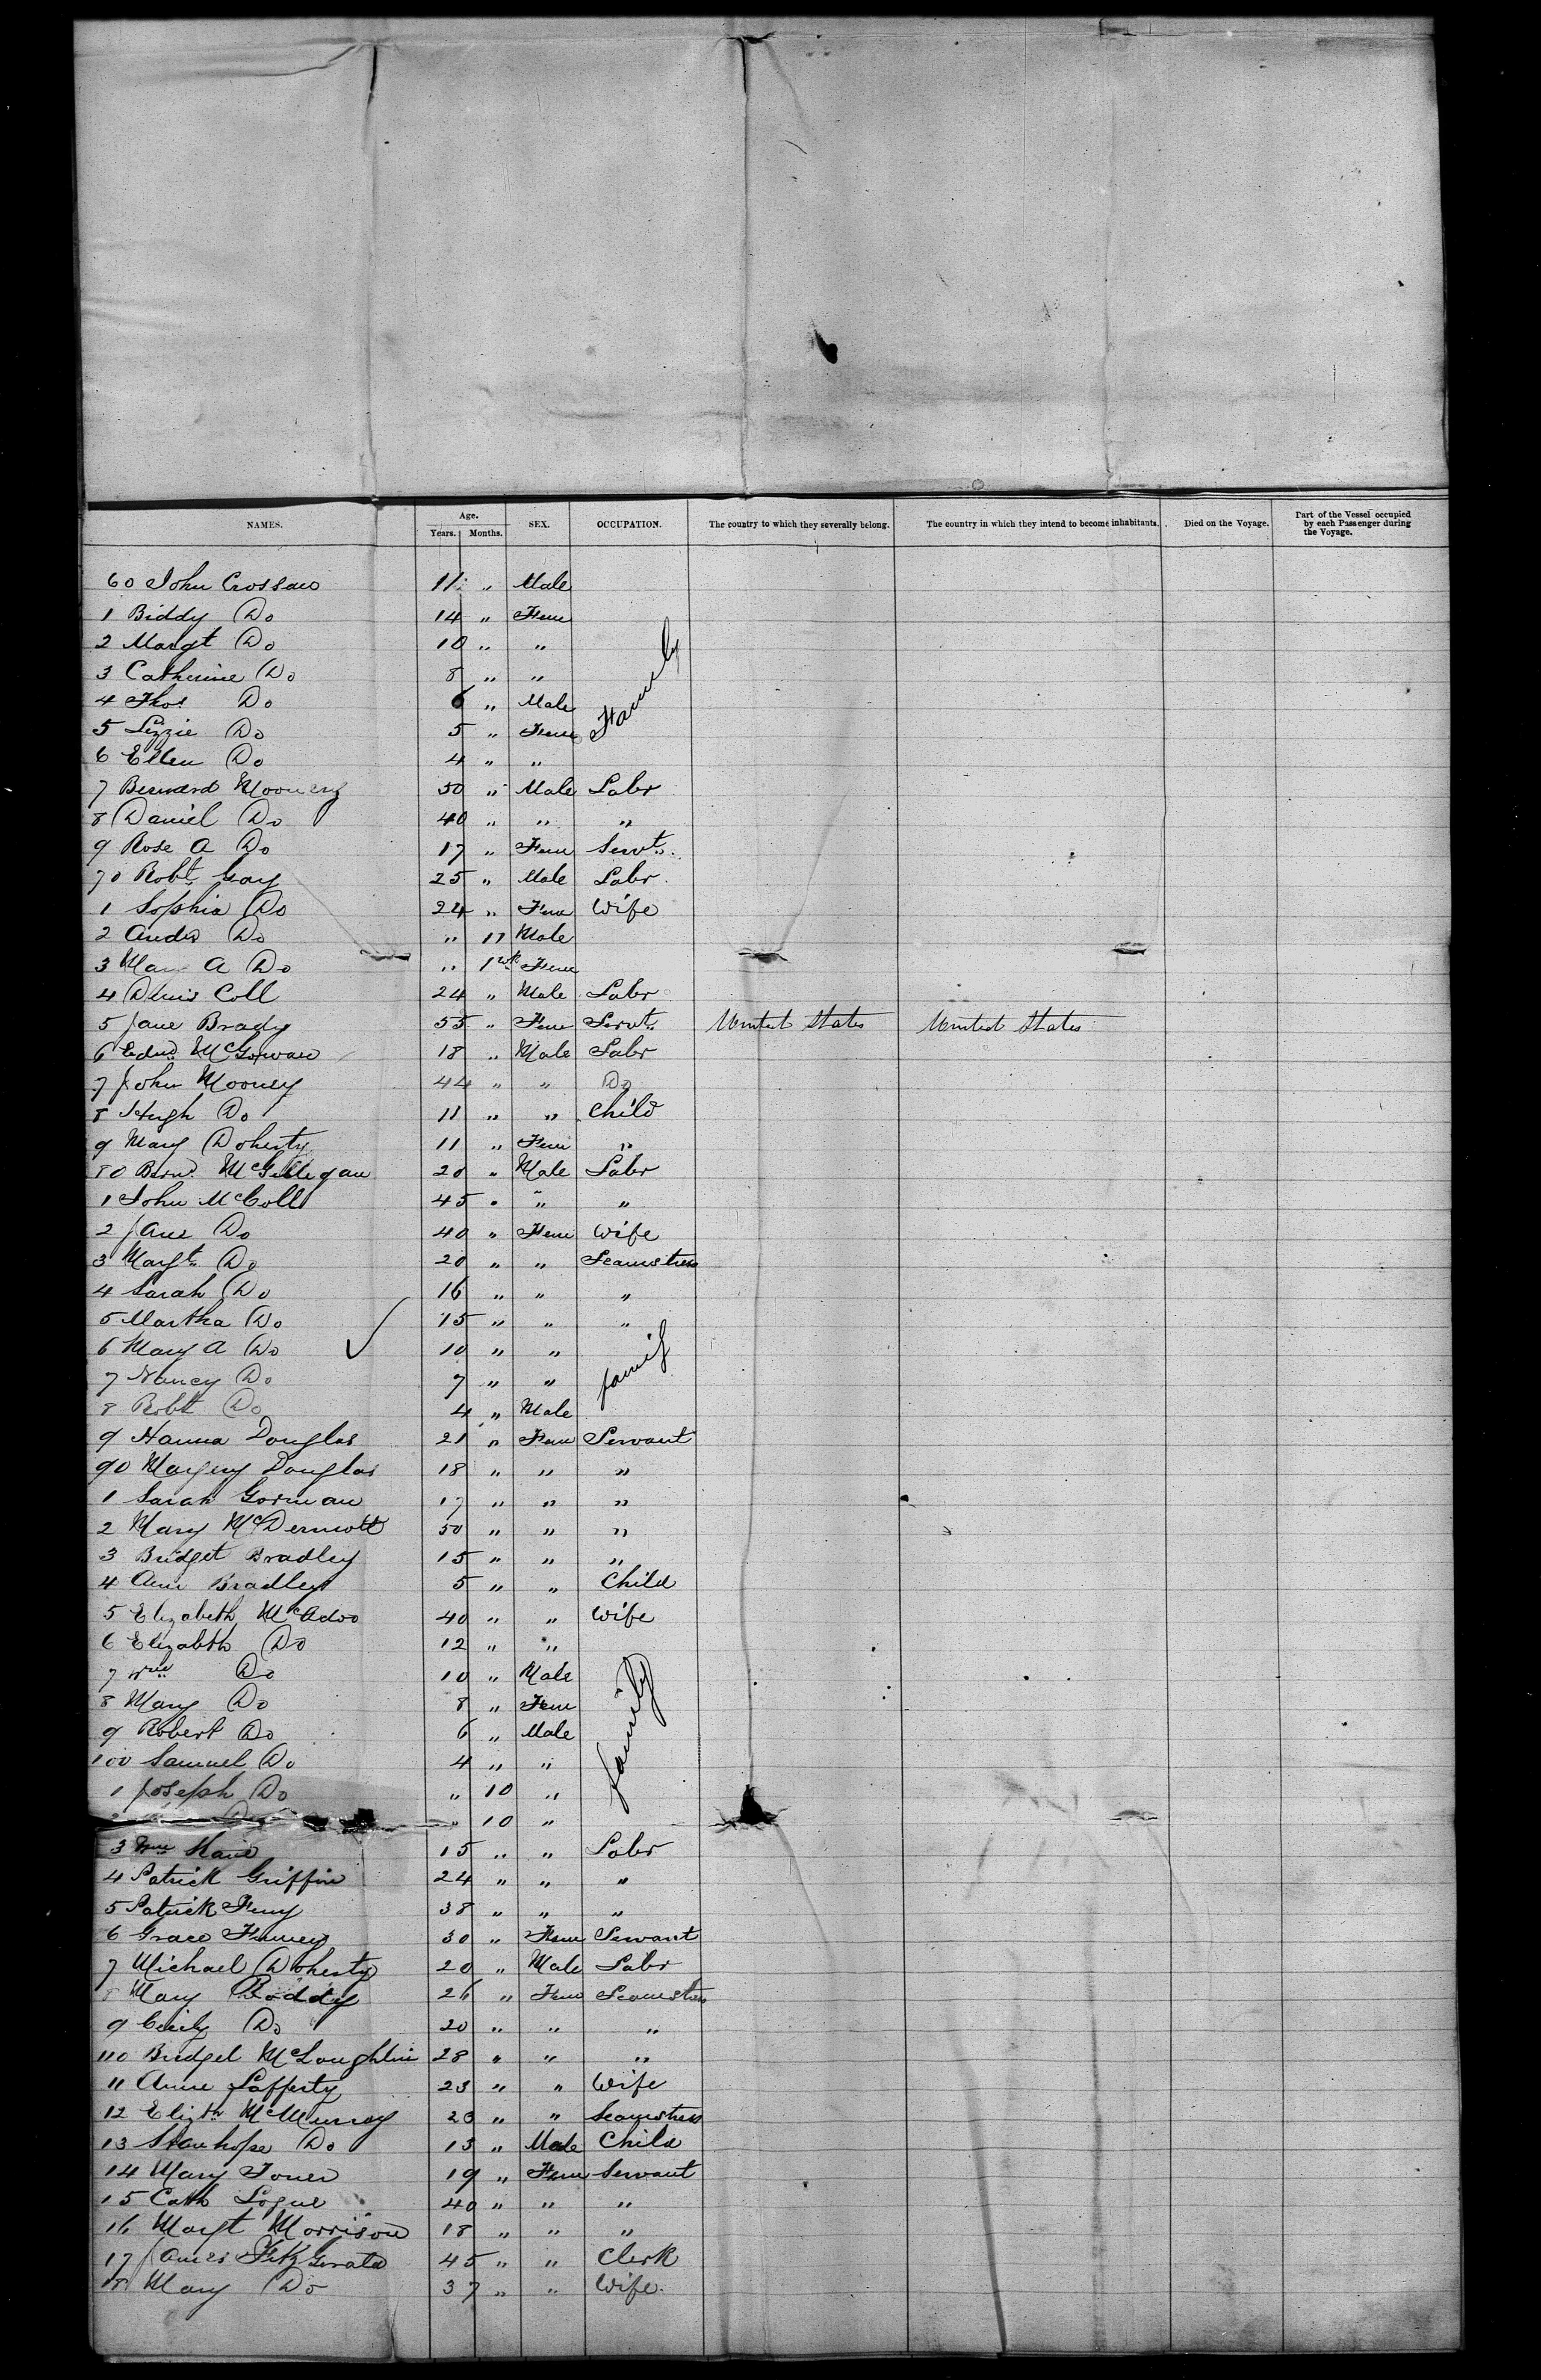 NAMES. Age. SEX. OCCUPATION. The country to which they severally belong. The country in which they intend to become inhabitants. Died on the Voyage. Part of the Vessel occupied by each Passenger during the Voyage.
Years. Months.
60 John Crossan 11 " Male
1 Biddy Do 14 " Fem
2 Margt Do 10 " "
3 Catherine Do 8 " "
4 Thos Do 6 " Male
Family
5 Lizzie Do 5 " Fem
6 Ellen Do 4 " "
7 Bernard Mooney 50 " Male Labr
8 Daniel Do 40 " " "
9 Rose A Do 17 " Fem Servt
70 Robt Gay 25 " Male Labr
1 Sophia Do 24 " Fem Wife
2 Andw Do " 11 Male
3 Mary A Do " 1 wk Fem
4 Denis Coll 24 " Male Labr
5 Jane Brady 55 " Fem Servt United States United States
6 Edwd McGowan 18 " Male Labr
7 John Mooney 44 " " Do
8 Hugh Do 11 " " Child
9 Mary Doherty 11 " Fem "
80 Bernd McGillegan 20 " Male Labr
1 John McColl 45 " " "
2 Jane Do 40 " Fem Wife
3 Margt Do 20 " " Seamstress
4 Sarah Do 16 " " "
5 Martha Do 15 " " "
6 Mary A Do 10 " "
family
7 Nancy Do 7 " "
8 Robt Do 4 " Male
9 Hanna Douglas 21 " Fem Servant
90 Margery Douglas 18 " " "
1 Sarah Gorman 17 " " "
2 Mary McDermott 50 " " "
3 Bridget Bradley 15 " " "
4 Ann Bradley 5 " " Child
5 Elizabeth McAdoo 40 " " Wife
6 Elizabth Do 12 " "
7 Wm Do 10 " Male
8 Mary Do 8 " Fem
family
9 Robert Do 6 " Male
100 Samuel Do 4 " "
1 Joseph Do " 10 "
2 Do " 10 "
3 Wm 15 " " Labr
4 Patrick Griffin 24 " " "
5 Patrick 38 " " "
6 Grace 30 " Fem Servant
7 Michael Doherty 20 " Male Labr
8 Mary Boddy 26 " Fem Seamstress
9 Cicily Do 20 " " "
110 Bridget McLaughlin 28 " " "
11 Anne Lafferty 23 " " Wife
12 Elizth McMurray 23 " " Seamstress
13 Stanhope Do 13 " Male Child
14 Mary Toner 19 " Fem Servant
15 Cath Logue 40 " " "
16 Margt Morrison 18 " " "
17 James FitzGerald 45 " " Clerk
18 Mary Do 37 " " Wife